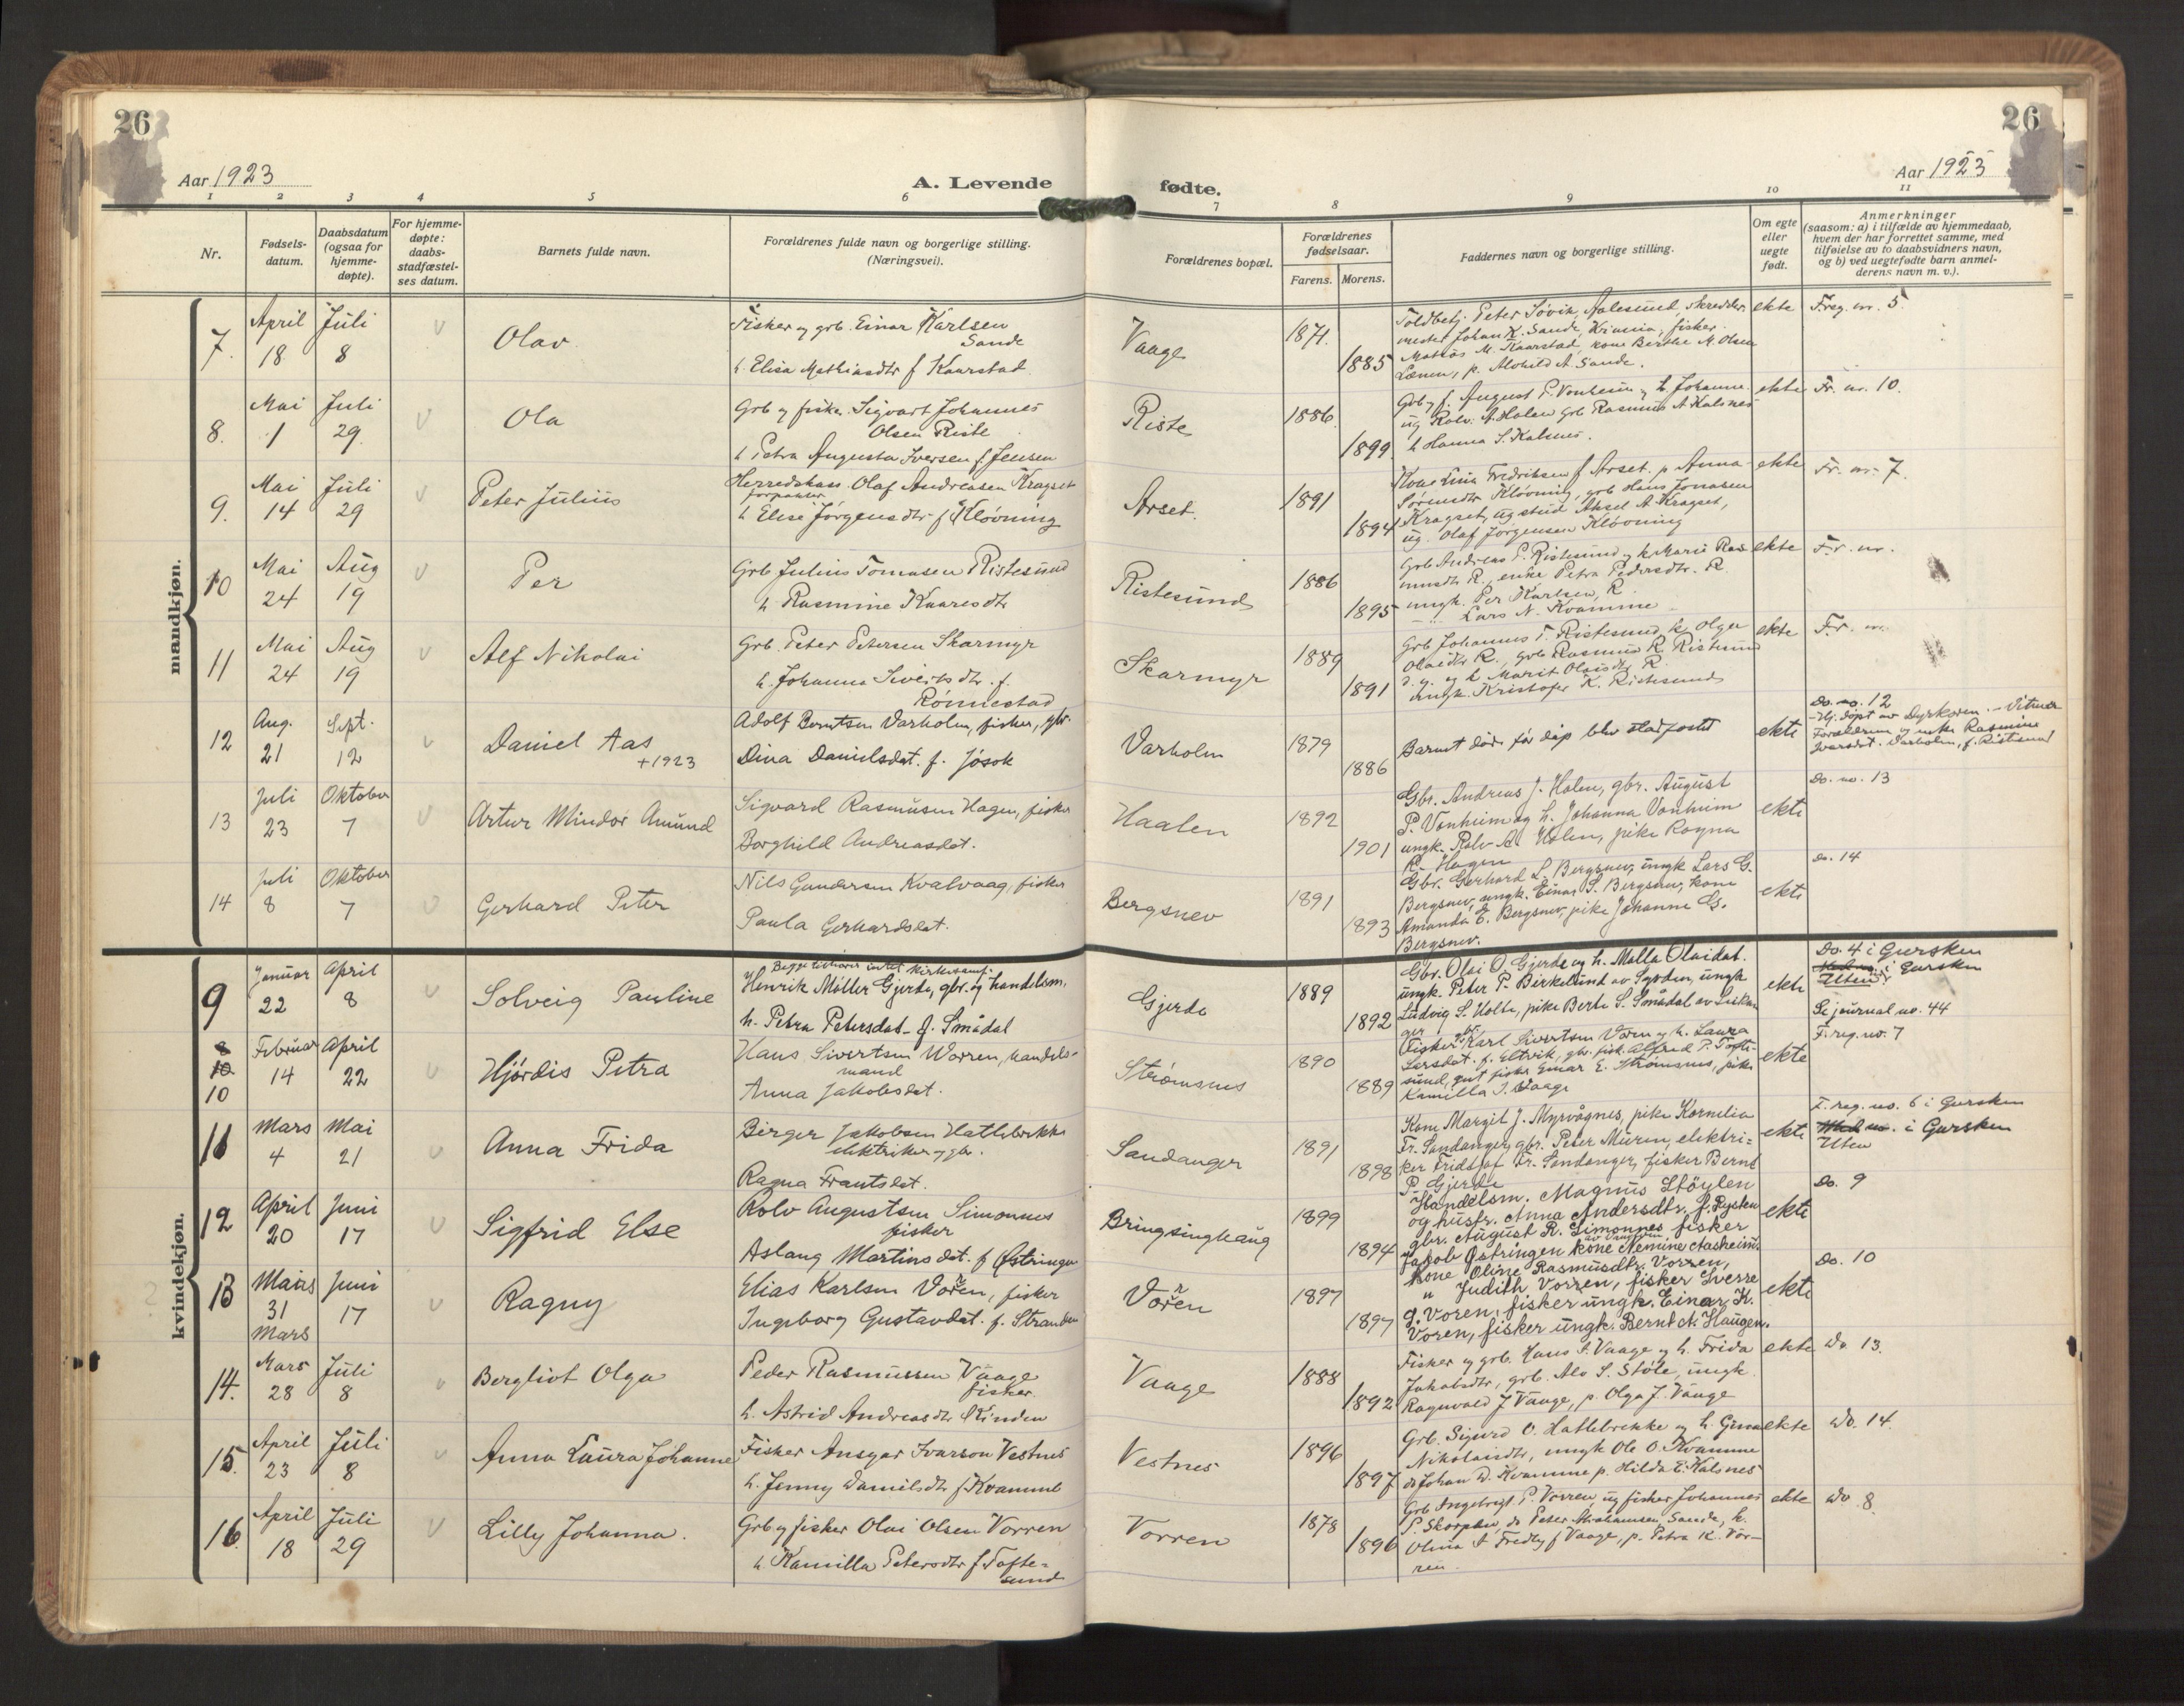 26
26
Aar 1923
A. Levende fødte.
Aar 1923
1 2 3 4 5 6 7 8 9 10 11
Nr.
Fødsels-
datum.
Daabsdatum
(ogsaa for
hjemme-
døpte).
For hjemme-
døpte:
daabs-
stadfæstel-
ses datum.
Barnets fulde navn.
Forældrenes fulde navn og borgerlige stilling.
(Næringsvei).
Forældrenes bopæl.
Forældrenes
fødselsaar.
Farens. Morens.
Faddernes navn og borgerlige stilling.
Om egte
eller
uegte
født.
Anmerkninger
(saasom: a) i tilfælde av hjemmedaab,
hvem der har forrettet samme, med
tilføielse av to daabsvidners navn,
og b) ved uegtefødte barn anmel-
derens navn m. v.).
mandkjøn.
7.
April
18
Juli
8
Olav
Fisker og grb. Einar Karlsen
Sande
h. Elisa Mathiasdtr f Kaarstad
Vaage
1871.
1885
Toldbetj. Peter Søvik, Aalesund, skredder
mester Johan K. Sande, Kr.ania, fisker
Matias M. Kaarstad, kone Berthe M. Olsen
p. Alvhild A. Sande.
ekte
Freg. nr. 5
8.
Mai
1
Juli
29
Ola
Grb og fisker Sigvart Johannes
Olsen Riste
h Petra Augusta Iversen f. Jensen
Riste
1886
1899
Grb og f. August P. Vonheim og h Johanna
ug Rolv. A. Holen grb Rasmus A Kalsnes
h Hanna S. Kalsnes.
ekte
Fr. nr. 10.
9.
Mai
14
Juli
29
Peter Julius
Herredskass. Olaf Andreasen Kragset
forpakter
h Elise Jørgensdtr f Kløvning
Arset.
1891
1894
Kone Lina Fredriksen f Arset. p Anna
Sørensdtr Kløvning, grb Hans Jonasen
Kragset, ug stud Aksel A. Kragset,
ug. Olaf Jørgensen Kløvning
ekte
Fr. nr. 7.
10
Mai
24
Aug
19
Per
Grb Julius Tomasen Ristesund
h Rasmine Knaresdtr
Ristesund
1886
1895
Grb Andreas P. Ristesund og h Marie Ras-
musdtr R., enke Petra Pedersdtr. R.
ungk. Per Karlsen, R
Lars N. Kvamme
ekte
Fr. nr.
11
Mai
24
Aug
19
Alf Nikolai
Grb. Peter Petersen Skarmyr
h. Johanna Sivertsdtr. f.
Rønnestad
Skarmyr
1889
1891
Grb Johannes T. Ristesund, k. Olga
Olaidtr R., grb Rasmus R. Ristesund
d. y. og h Marit Olaisdtr R
ungk. Kristofer K. Ristesund
ekte
Fr. nr.
12
Aug.
21
Sept.
12
Daniel Aas
+1923
Adolf Berntsen Varholm, fisker, gbr.
Dina Danielsdat. f. Jøsok
Varholm
1879
1886
Barnet døde før dåp blev stadfestet
ekte
Do. no. 12
- Hj. døpt av Dyrkoren. - Vitner
Forældrene og enke Rasmine
Ivarsdat. Varholm, f. Ristesund
13
Juli
23
Oktober
7
Artur Mindor Amund
Sigvard Rasmusen Hagen, fisker
Borghild Andreasdat.
Haalen
1892
1901
Gbr. Andreas J. Holen, gbr. August
P. Vonheim og h. Johanna Vonheim
ungk. Rolv A. Holen, pike Ragna
R. Hagen
ekte
Do. no. 13
14
Juli
8
Oktober
7
Gerhard Peter
Nils Gundersen Kvalvaag, fisker
Paula Gerhardsdat.
Bergsnev
1891
1893
Gbr. Gerhard L. Bergsnev, ungk Lars G.
Bergsnev, ungk. Einar S. Bergsnev, kone
Amanda E. Bergsnev, pike Johanne G.
Bergsnev.
ekte
Do. 14
kvindekjøn.
9
Januar
22
April
8
Solveig Pauline
Begge tilhører intet kirkesamf.
Henrik Møller Gjerde, gbr. og handelsm.
h. Petra Petersdat. f. Smådal
Gjerde
1889
1892
Gbr. Olai O. Gjerde og h. Malla Olaidat.
ungk. Peter P. Birkelund av Syvden, ungk
Ludvig S. Holte, pike Berte S. Smådal av Leikan
ger
ekte
Do. 4 i Gursken
i Gursken
Uten
Se journal no. 44
8
10
10
Februar
14
April
22
Hjørdis Petra
Hans Sivertsen Worren, handels-
mand
Anna Jakobsdat.
Strømsnes
1890
1889
Fisker gbr. Karl Sivertsen Voren og h. Laura
Larsdat. f. Eltvik, gbr. fisk. Alfred P. Tofte-
sund, gut fisker Einar E. Strømsnes, pike
Kamilla J. Vaage
ekte
F. reg. no. 7
11
Mars
4
Mai
21
Anna Frida
Birger Jakobsen Hatlebrekke
elektriker og gbr.
Ragna Frantsdat.
Sandanger
1891
1898
Kone Margit J. Myrvågnes, pike Kornelia
Fr. Sandanger, gbr. Peter Muren, elektri-
ker Fridtjof Fr. Sandanger, fisker Bernt
P. Gjerde
ekte
F. reg. no. 6 i Gursken
i Gursken
Uten
12
April
20
Juni
17
Sigfrid Else
Rolv Augustsen Simonnes
fisker
Aslaug Martinsdat. f Østringen
Bringsinghaug
1899
1894
Handelsm. Magnus Støylen
og husfr. Anna Andersdtr. f. Rysten
gbr. August R. Simonnes fisker
Jakob Østringen kone Nemine Aasheim
ekte
Do. 9
13
Mars
31
Mars
Juni
17
Ragny
Elias Karlsen Voren, fisker
Ingeborg Gustavdat. f. Stranden
Voren
1897
1897
Kone Oline Rasmusdtr. Vorren,
" Judith Vorren, fisker Sverre
G. Voren, fisker ungk. Einar K.
Voren, fisker ungk. Bernt A. Haugen.
ekte
Do. 10
14.
Mars
28
Juli
8
Bergliot Olga
Peder Rasmussen Vaage
fisker
h. Astrid Andreasdtr Rinden
Vaage
1888
1892
Fisker og grb. Hans P. Vaage og h. Frida
Jakobsdtr, grb. Alv S. Støle, ungk.
Ragnvald J Vaage, p. Olga J. Vaage
ekte
Do. 13.
15.
April
23
Juli
8
Anna Laura Johanne
Fisker Ansgar Ivarson Vestnes
h. Jenny Danielsdtr f Kvamme
Vestnes
1896
1897
Grb. Sigurd O. Hatlebrekke og h. Gina
Nikolaisdtr, ungk Ole O. Kvamme
do Johan D. Kvamme p. Hilda E. Kalsnes
ekte
Do. 14
16.
April
18
Juli
29
Lilly Johanna.
Grb og fisker Olai Olsen Vorren
h Kamilla Petersdtr f Tofte-
sund
Vorren
1878
1896
Grb Ingebrigt P. Vorren, ug fisker Johannes
P. Skorpen, do Peter Abrahamsen, Sande, k.
Olina A Fredly f Vaage, p. Petra K. Vor-
ren.
ekte
Do. 8